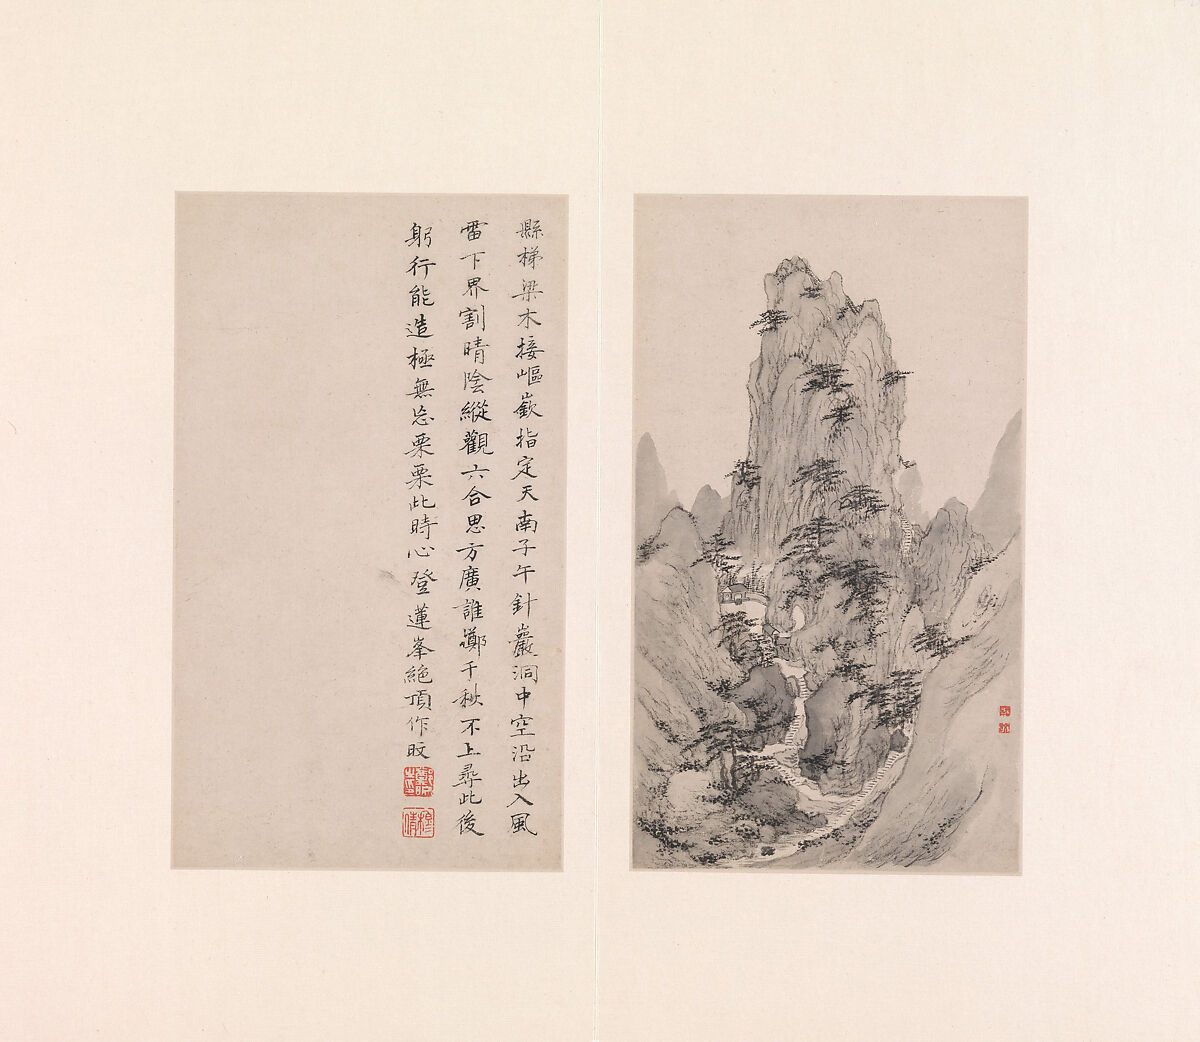 縣梯梁木接嶇嶔指定天南子午針巖洞中空沿出入風
雷下界割晴陰縱觀六合思方廣誰擲千秋不上尋此後
躬行能造極無忘栗栗此時心登蓮峯絕頂作旼